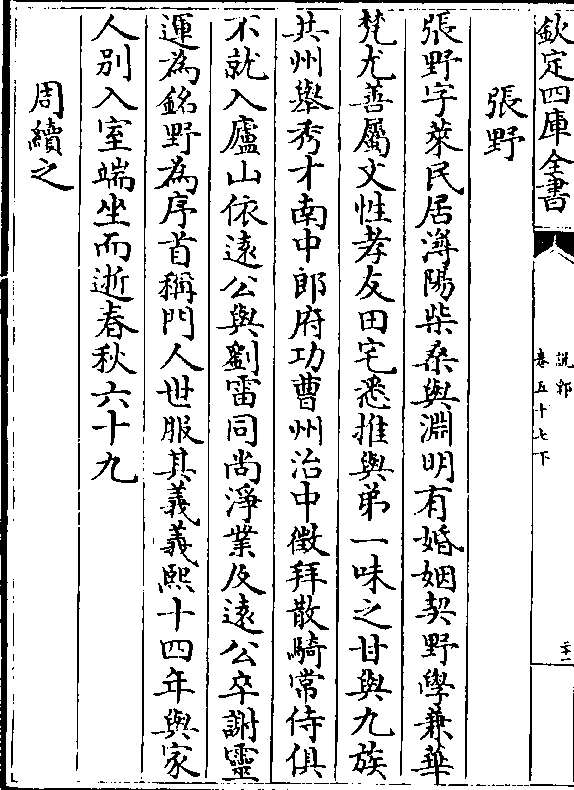 欽定四庫全書
說郛
卷五十七下
二十一
張野
張野字萊民居潯陽柴桑與淵明有婚姻契野學兼華
梵尤善屬文性孝友田宅悉推與弟一味之甘與九族
共州舉秀才南中郎府功曹州治中徵拜散騎常侍俱
不就入廬山依遠公與劉雷同尚淨業及遠公卒謝靈
運為銘野為序首稱門人世服其義義熙十四年與家
人別入室端坐而逝春秋六十九
周續之